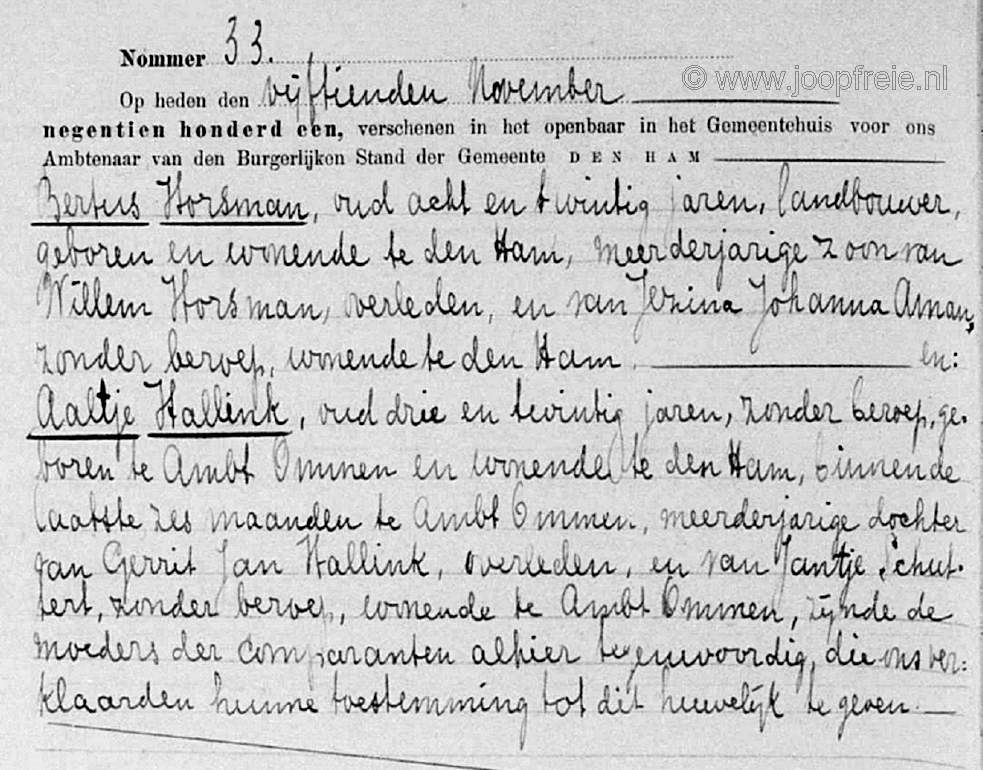 © www.joopfreie.nl
Nommer 33.
Op heden den vijftienden November
negentien honderd een, verschenen in het openbaar in het Gemeentehuis voor ons
Ambtenaar van den Burgerlijken Stand der Gemeente DEN HAM
Bertus Horsman, oud acht en twintig jaren, landbouwer,
geboren en wonende te den Ham, meerderjarige zoon van
Willem Horsman, overleden, en van Jezina Johanna Aman,
zonder beroep, wonende te den Ham. en:
Aaltje Hallink, oud drie en twintig jaren, zonder beroep, ge-
boren te Ambt Ommen en wonende te den Ham, binnen de
laatste zes maanden te Ambt Ommen, meerderjarige dochter
van Gerrit Jan Hallink, overleden, en van Jantje Schut-
tert, zonder beroep, wonende te Ambt Ommen, zijnde de
moeders der comparanten alhier tegenwoordig, die ons ver:
klaarden hunne toestemming tot dit huwelijk te geven.